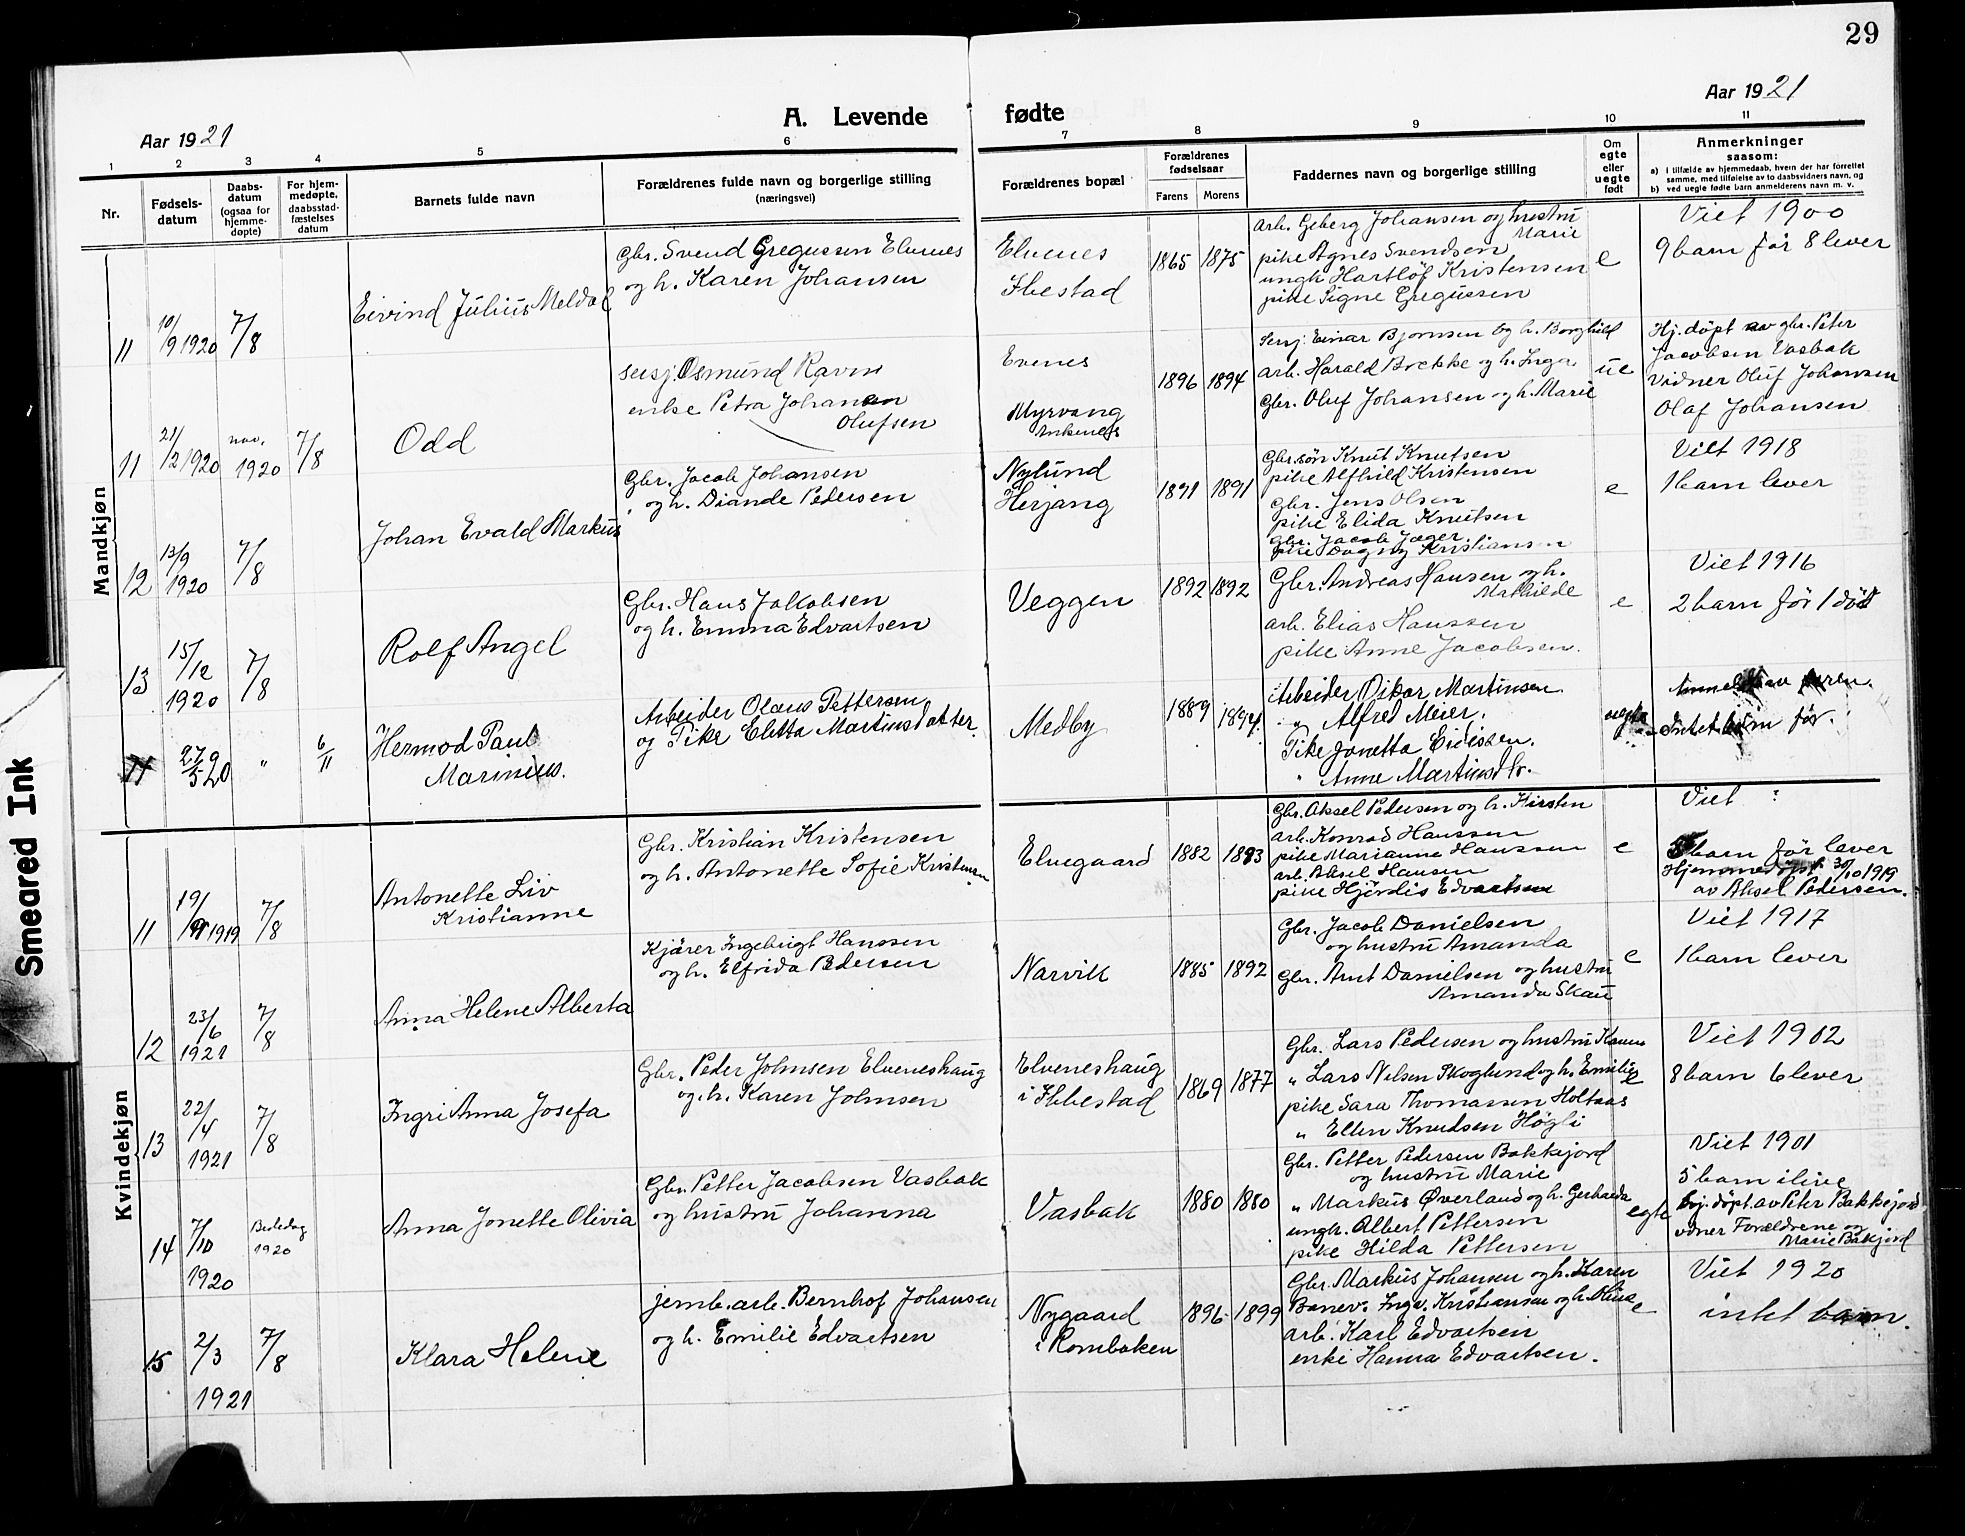 29
Aar 1921
A. Levende fødte
Aar 1921
1 2 3 4 5 6 7 8 9 10 11
Nr.
Fødsels-
datum
Daabs-
datum
(ogsaa for
hjemme-
døpte)
For hjem-
medøpte,
daabsstad-
fæstelses
datum
Barnets fulde navn
Forældrenes fulde navn og borgerlige stilling
(næringsvei)
Forældrenes bopæl
Forældrenes
fødselsaar
Farens Morens
Faddernes navn og borgerlige stilling
Om
egte
eller
uegte
født
Anmerkninger
saasom:
a) i tilfælde av hjemmedaab, hvem der har forrettet
samme, med tilføielse av to daabsvidners navn, og
b) ved uegte fødte barn anmelderens navn m. v.
Mandkjøn
11
10/9 1920
7/8
Eivind Julius Meldal
Gbr. Svend Gregussen Elvenes
og h. Karen Johansen
Elvenes
Ibestad
1865 1875
arb. Geberg Johansen og hustru
Marie
pike Agnes Svendsen
ungk. Hartløf Kristensen
pike Signe Gregussen
e
Viet 1900
9 barn før 8 lever
11
21/2 1920
nov.
1920
7/8
Odd
sersj. Osmund Ravn
enke Petra Johansen
Olufsen
Evenes
Myrvang
Ankenes
1896 1894
Sersj. Einar Bjørnsen og h. Borghild
arb. Harald Brekke og h. Inga
Gbr. Oluf Johansen og h. Marie
ue
Hj. døpt av gbr. Peter
Jacobsen Vasbak
Vidner Oluf Johansen
Olaf Johansen
12
13/9
1920
7/8
Johan Evald Markus
Gbr. Jacob Johansen
og h. Diande Pedersen
Nylund
Herjang
1891 1891
Gbr.søn Knut Knutsen
pike Alfhild Kristensen
Gbr. Jens Olsen
pike Elida Knutsen
gbr. Jacob Jæger
pike Dagny Kristiansen
e
Viet 1918
1 barn lever
13
15/12
1920
7/8
Rolf Angel
Gbr. Hans Jakobsen
og h. Emma Edvartsen
Veggen
1892 1892
Gbr. Andreas Hansen og h.
Mathilde
arb. Elias Hanssen
pike Anne Jacobsen.
e
Viet 1916
2 barn før 1 død
14
27/5 20
"
6/11
Hermod Paul
Marinius.
Arbeider Olaus Pettersen
og Pike Eletta Martinusdatter.
Medby
1889 1894.
Arbeider Oskar Martinsen.
" Alfred Meier.
Pike Jonetta Eriksen.
" Anne Martinusdtr.
uegte
Intet barn før.
Kvindekjøn
11
19/9 1919
7/8
Antonette Liv
Kristianne
Gbr. Kristian Kristensen
og h. Antonette Sofie Kristensen
Elvegaard
1882 1883
Gbr. Aksel Pedersen og h. Kirsten
arb. Konrad Hanssen
pike Marianne Hanssen
arb. Aksel Hansen
pike Hjørdis Edvartsen
e
Viet ?
5 barn før lever
Hjemmedøpt 30/10 1919
av Aksel Pedersen.
12
23/6
1921
7/8
Anna Helene Alberta
Kjører Ingebrigt Hanssen
og h. Elfrida Pedersen
Narvik
1885 1892
Gbr. Jacob Danielsen
og hustru Amanda
Gbr. Arnt Danielsen og hustru
Amanda Skau
e
Viet 1917
1 barn lever
13
22/4
1921
7/8
Ingri Anna Josefa
Gbr. Peder Johnsen Elveneshaug
og h. Karen Johnsen
Elveneshaug
i Ibbestad
1869 1877
Gbr. Lars Pedersen og hustru Hanna
" Lars Nilsen Skoglund og h. Emilie
pike Sara Thomassen Holtaas
" Ellen Knudsen Høgli
e
Viet 1902
8 barn 6 lever
14
7/10
1920
Bededag
1920
Anna Jonette Olivia
Gbr. Petter Jacobsen Vasbak
og hustru Johanna
Vasbak
1880 1880
Gbr. Petter Pedersen Bakkejord
og hustru Marie
" Markus Øverland og h. Gerharda
ungk. Albert Pettersen
pike Hilda Pettersen
egte
Viet 1901
5 barn ilive
hj. døpt. av Peter Bakkejord
vidner Forældrene og
Marie Bakjord
15
2/3
1921
7/8
Klara Helene
jernb. arb. Bernhof Johansen
og h. Emilie Edvartsen
Nygaard
i Rombaken
1896 1899
Gbr. Markus Johansen og h. Karen
Banev. Ingv. Kristiansen og h. Alina
arb. Karl Edvartsen
enke Hanna Edvartsen.
e
Viet 1920
intet barn.
Smeared Ink